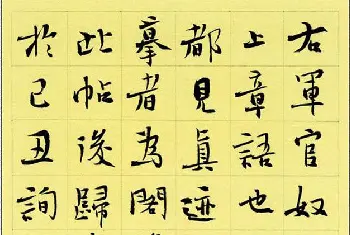 右軍官奴
上章語也
都見眞迹
摹者為閣
此帖後歸
於己丑詢